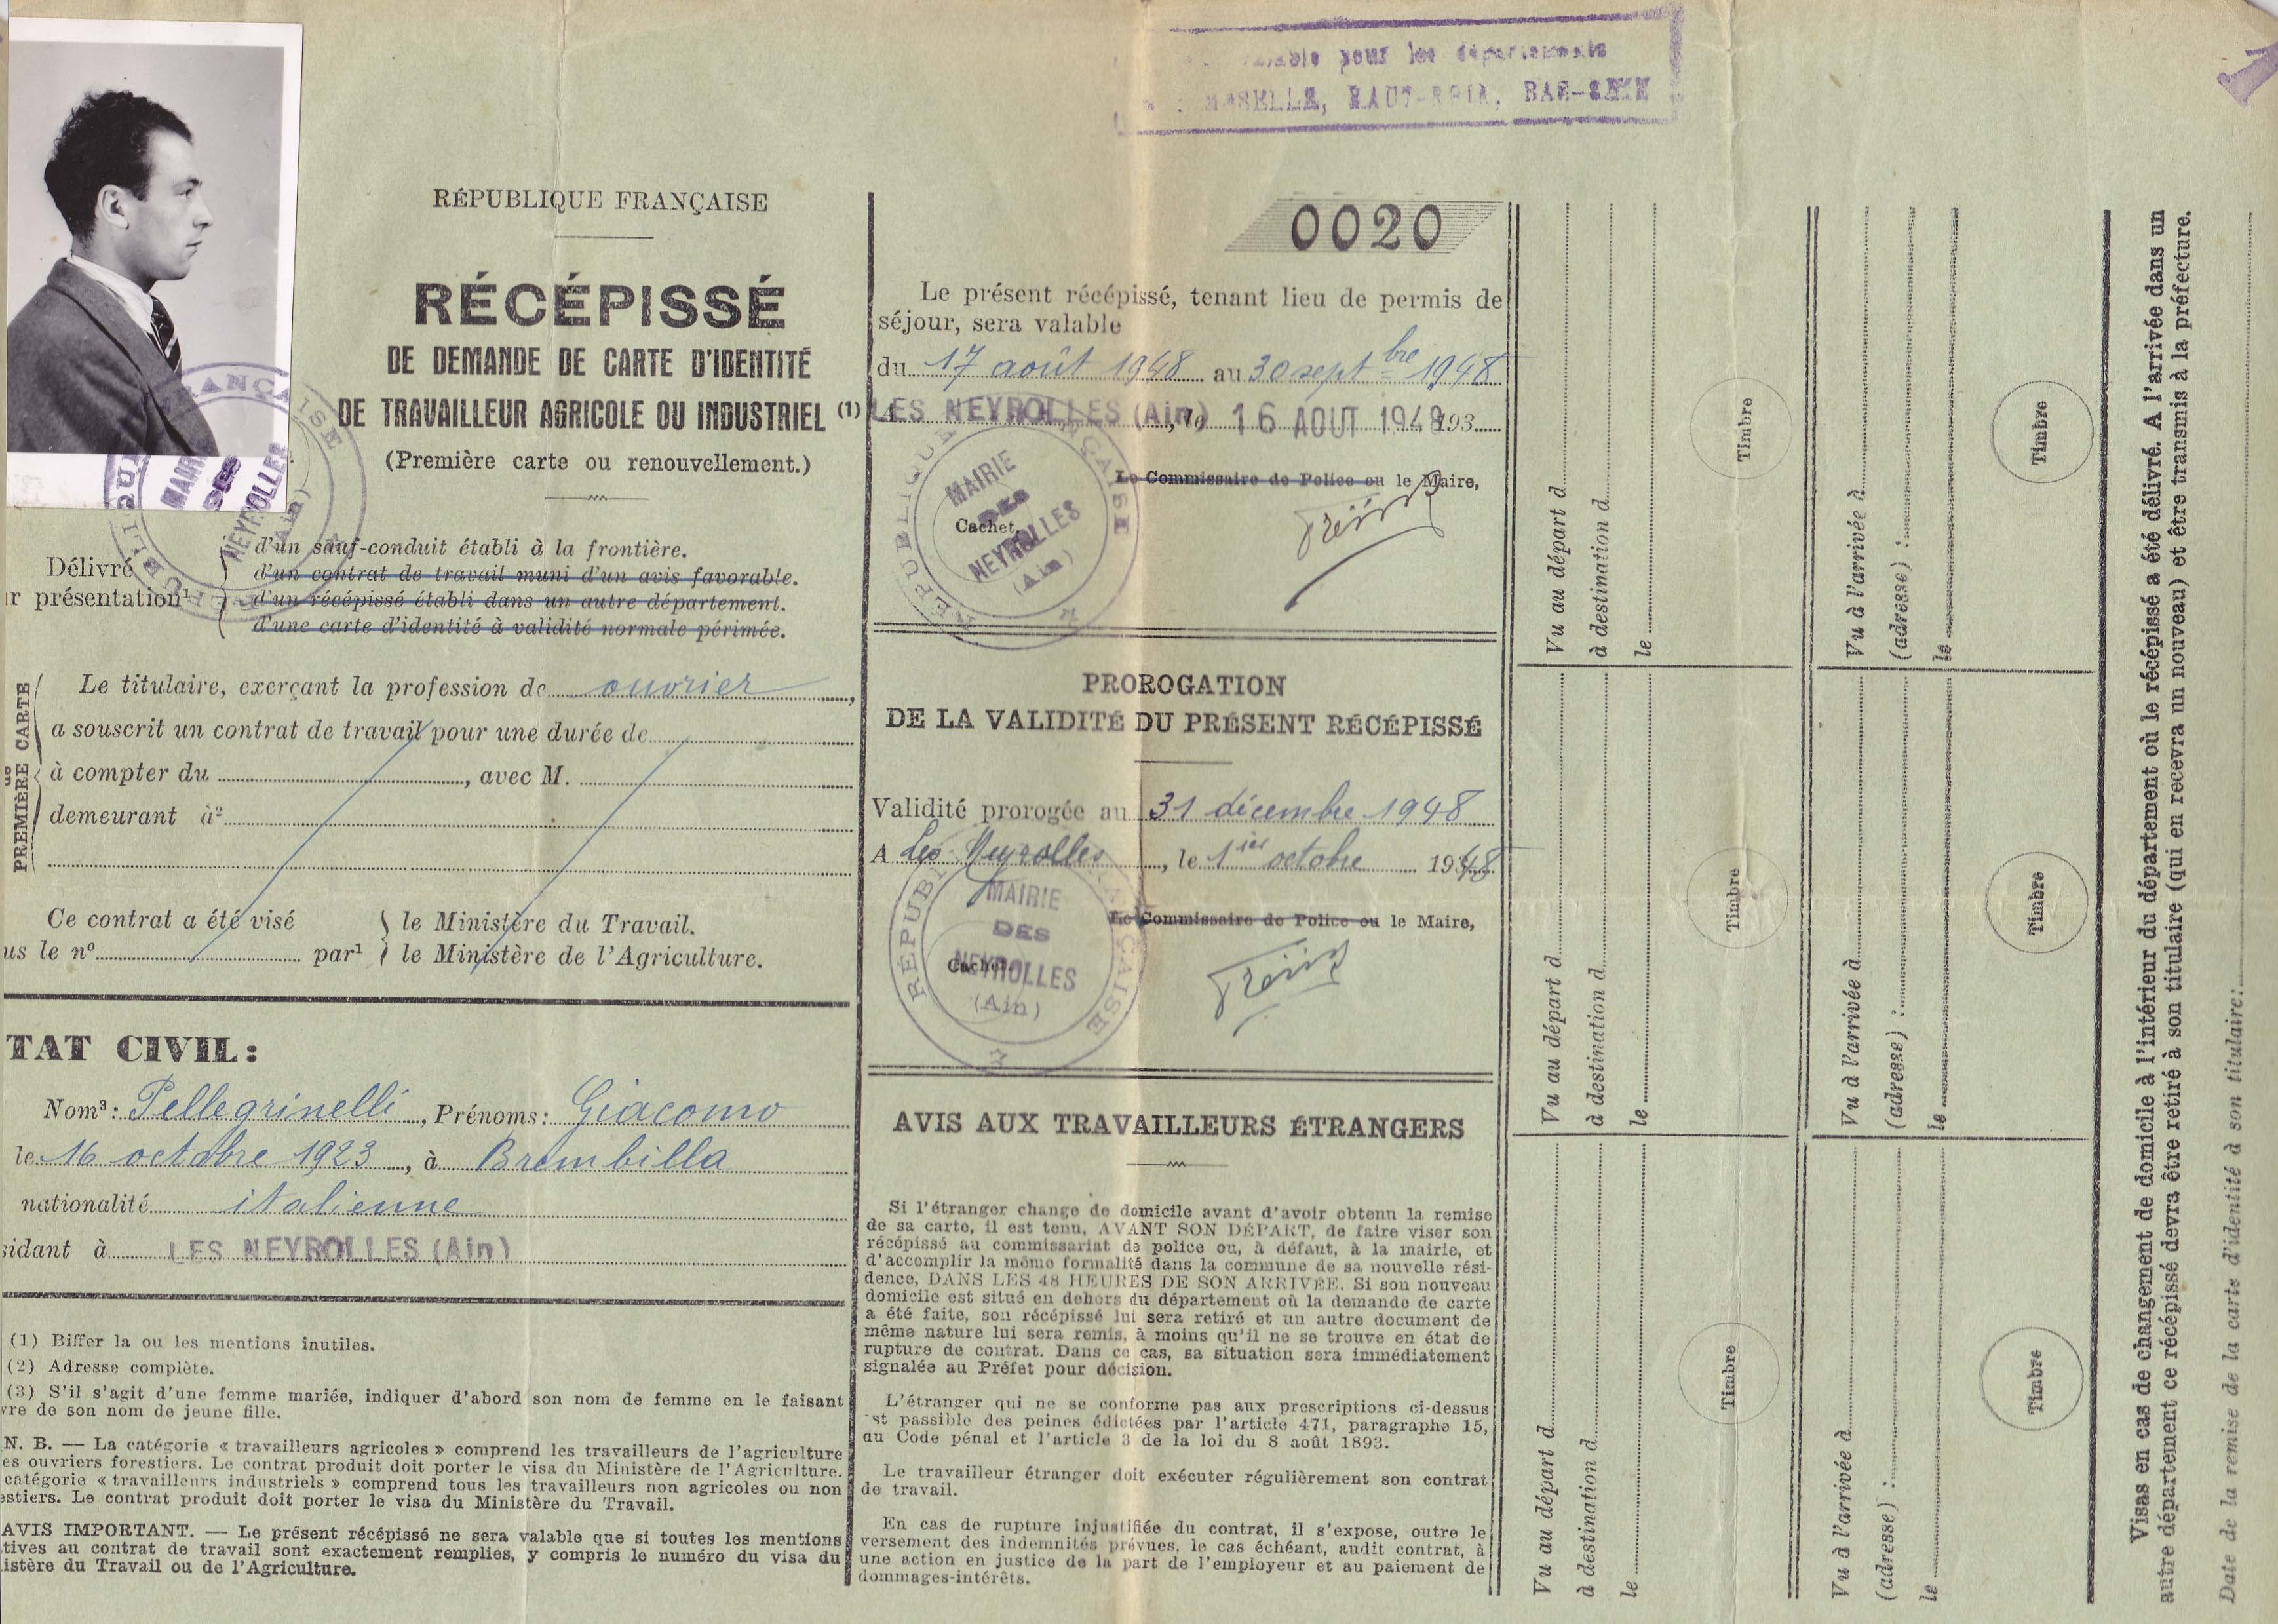 RÉPUBLIQUE FRANÇAISE
RÉCÉPISSÉ
DE DEMANDE DE CARTE D'IDENTITÉ
DE TRAVAILLEUR AGRICOLE OU INDUSTRIEL (1)
(Première carte ou renouvellement.)
MAIRIE
DES
NEYROLLES
(Ain)
Délivré
r présentation¹
d'un sauf-conduit établi à la frontière.
d'un contrat de travail muni d'un avis favorable.
d'un récépissé établi dans un autre département.
d'une carte d'identité à validité normale périmée.
PREMIÈRE CARTE
Le titulaire, exerçant la profession de ouvrier,
a souscrit un contrat de travail pour une durée de
à compter du , avec M.
demeurant à²
Ce contrat a été visé
us le nº par¹
le Ministère du Travail.
le Ministère de l'Agriculture.
TAT CIVIL:
Nom³: Pellegrinelli, Prénoms: Giacomo
le 16 octobre 1923, à Brembilla
nationalité italienne
sidant à LES NEYROLLES (Ain)
(1) Biffer la ou les mentions inutiles.
(2) Adresse complète.
(3) S'il s'agit d'une femme mariée, indiquer d'abord son nom de femme en le faisant
vre de son nom de jeune fille.
N. B. — La catégorie « travailleurs agricoles » comprend les travailleurs de l'agriculture
es ouvriers forestiers. Le contrat produit doit porter le visa du Ministère de l'Agriculture.
catégorie « travailleurs industriels » comprend tous les travailleurs non agricoles ou non
stiers. Le contrat produit doit porter le visa du Ministère du Travail.
AVIS IMPORTANT. — Le présent récépissé ne sera valable que si toutes les mentions
tives au contrat de travail sont exactement remplies, y compris le numéro du visa du
istère du Travail ou de l'Agriculture.
pour les départements
MOSELLE, HAUT-RHIN, BAS-RHIN
0020
Le présent récépissé, tenant lieu de permis de
séjour, sera valable
du 17 août 1948 au 30 septbre 1948
A LES NEYROLLES (Ain), le 16 AOUT 1948 193
Le Commissaire de Police ou le Maire,
Cachet
RÉPUBLIQUE FRANÇAISE
MAIRIE
DES
NEYROLLES
(Ain)
PROROGATION
DE LA VALIDITÉ DU PRÉSENT RÉCÉPISSÉ
Validité prorogée au 31 décembre 1948
A Les Neyrolles, le 1ier octobre 1948
Le Commissaire de Police ou le Maire,
Cachet
RÉPUBLIQUE FRANÇAISE
MAIRIE
DES
NEYROLLES
(Ain)
AVIS AUX TRAVAILLEURS ÉTRANGERS
Si l'étranger change de domicile avant d'avoir obtenu la remise
de sa carte, il est tenu, AVANT SON DÉPART, de faire viser son
récépissé au commissariat de police ou, à défaut, à la mairie, et
d'accomplir la même formalité dans la commune de sa nouvelle rési-
dence, DANS LES 48 HEURES DE SON ARRIVÉE. Si son nouveau
domicile est situé en dehors du département où la demande de carte
a été faite, son récépissé lui sera retiré et un autre document de
même nature lui sera remis, à moins qu'il ne se trouve en état de
rupture de contrat. Dans ce cas, sa situation sera immédiatement
signalée au Préfet pour décision.
L'étranger qui ne se conforme pas aux prescriptions ci-dessus
st passible des peines édictées par l'article 471, paragraphe 15,
du Code pénal et l'article 3 de la loi du 8 août 1893.
Le travailleur étranger doit exécuter régulièrement son contrat
de travail.
En cas de rupture injustifiée du contrat, il s'expose, outre le
versement des indemnités prévues, le cas échéant, audit contrat, à
une action en justice de la part de l'employeur et au paiement de
dommages-intérêts.
Vu au départ d
à destination d
le
Timbre
Vu à l'arrivée à
(adresse) :
le
Timbre
Vu au départ d
à destination d
le
Timbre
Vu à l'arrivée à
(adresse) :
le
Timbre
Vu au départ d
à destination d
le
Timbre
Vu à l'arrivée à
(adresse) :
le
Timbre
Visas en cas de changement de domicile à l'intérieur du département où le récépissé a été délivré. A l'arrivée dans un
autre département ce récépissé devra être retiré à son titulaire (qui en recevra un nouveau) et être transmis à la préfecture.
Date de la remise de la carte d'identité à son titulaire: